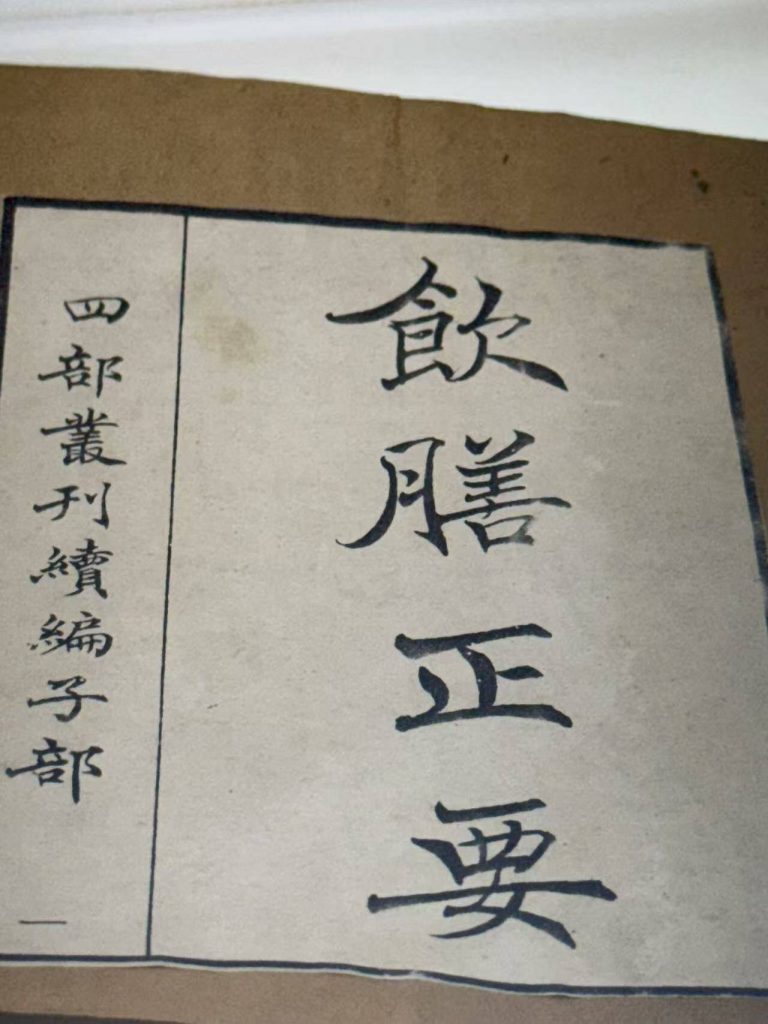 飲膳正要
四部叢刊續編子部
一